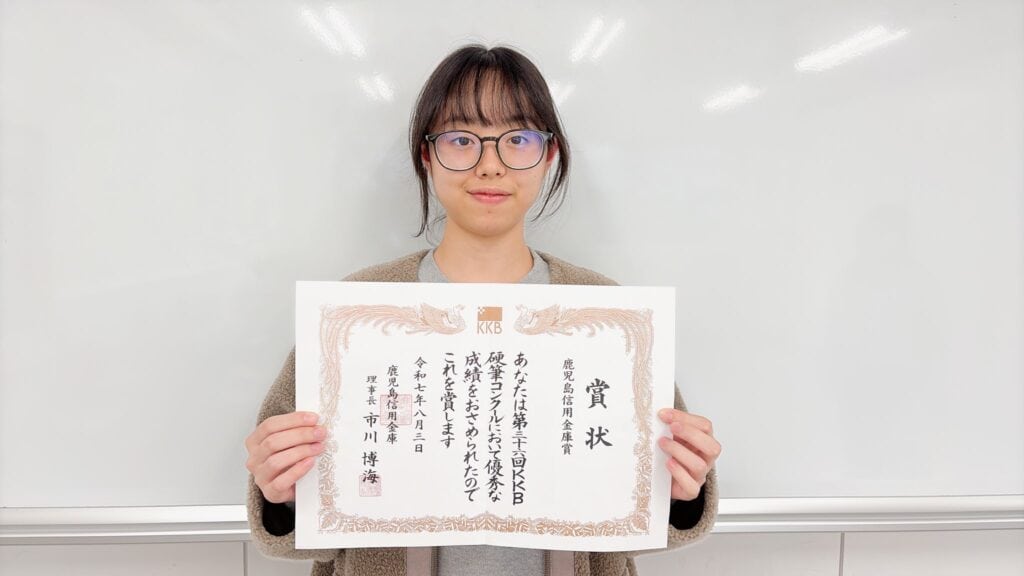 KKB
賞状
鹿児島信用金庫賞
あなたは第三十六回KKB
硬筆コンクールにおいて優秀な
成績をおさめられたので
これを賞します
令和七年八月三日
鹿児島信用金庫
理事長 市川 博海